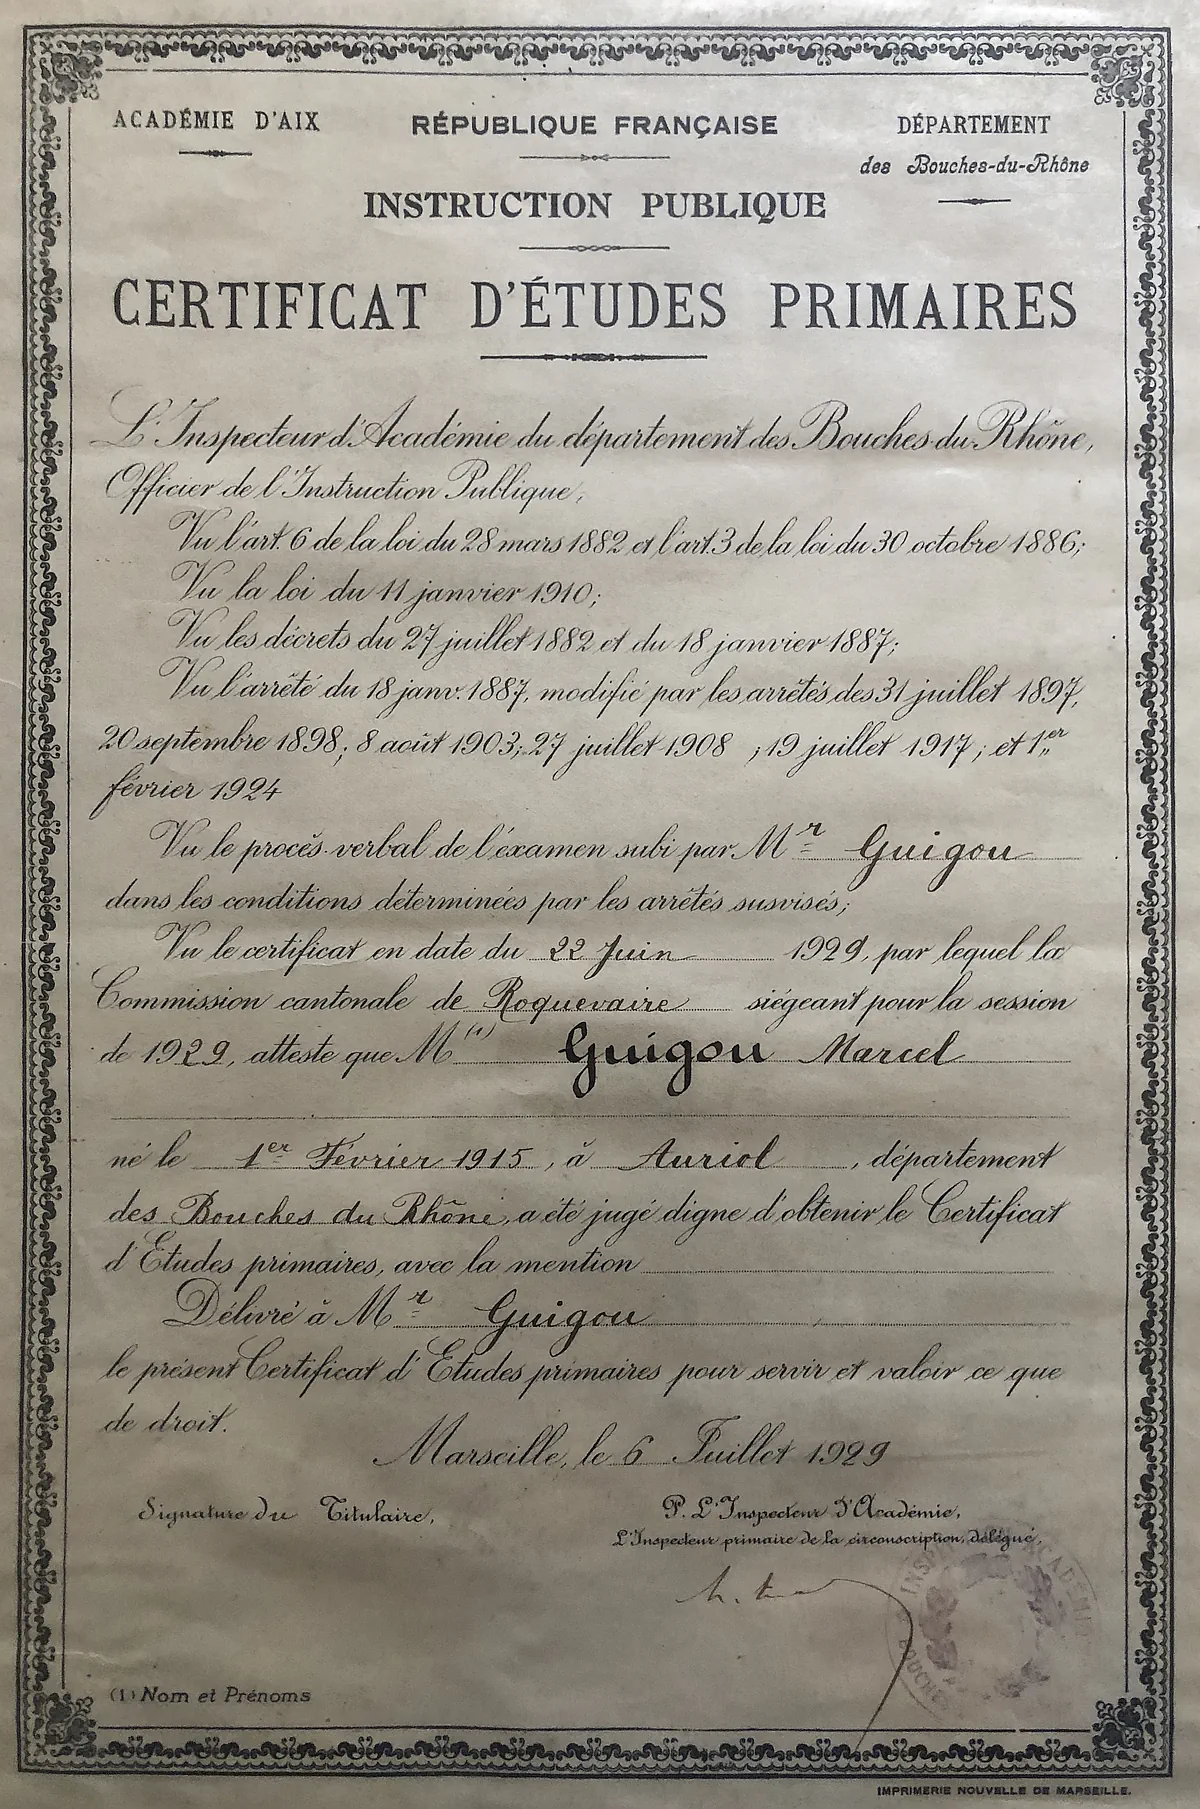 ACADÉMIE D'AIX
RÉPUBLIQUE FRANÇAISE
DÉPARTEMENT
des Bouches-du-Rhône
INSTRUCTION PUBLIQUE
CERTIFICAT D'ÉTUDES PRIMAIRES
L'Inspecteur d'Académie du département des Bouches-du-Rhône,
Officier de l'Instruction Publique,
Vu l'art. 6 de la loi du 28 mars 1882 et l'art. 3 de la loi du 30 octobre 1886;
Vu la loi du 11 janvier 1910;
Vu les décrets du 27 juillet 1882 et du 18 janvier 1887;
Vu l'arrêté du 18 janv. 1887, modifié par les arrêtés des 31 juillet 1897,
20 septembre 1898; 8 août 1903; 27 juillet 1908 ; 19 juillet 1917 ; et 1er
février 1924
Vu le procès-verbal de l'examen subi par Mr Guigou
dans les conditions déterminées par les arrêtés susvisés;
Vu le certificat en date du 22 Juin 1929, par lequel la
Commission cantonale de Roquevaire siégeant pour la session
de 1929, atteste que M (1) Guigou Marcel
né le 1er Février 1915, à Auriol, département
des Bouches du Rhône, a été jugé digne d'obtenir le Certificat
d'Etudes primaires, avec la mention
Délivré à Mr Guigou
le présent Certificat d'Etudes primaires pour servir et valoir ce que
de droit.
Marseille, le 6 Juillet 1929
Signature du Titulaire,
P. L'Inspecteur d'Académie,
L'Inspecteur primaire de la circonscription, délégué,
(1) Nom et Prénoms
IMPRIMERIE NOUVELLE DE MARSEILLE.